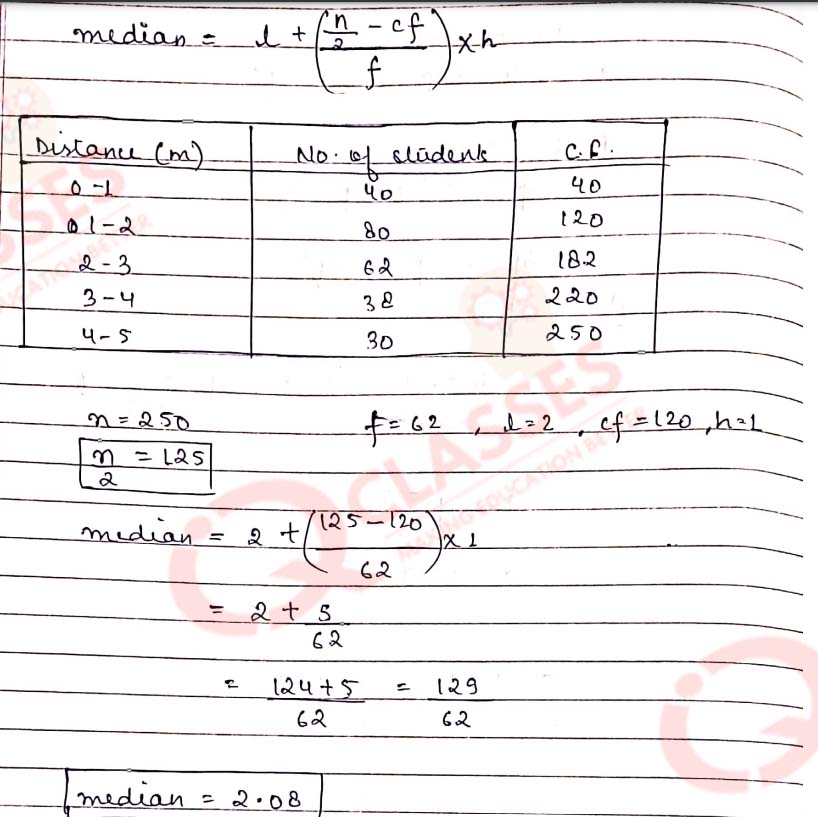 median = l + (n/2 - cf / f) × h
Distance (m) No. of student C.f.
0-1 40 40
0 1-2 80 120
2-3 62 182
3-4 38 220
4-5 30 250
n = 250 f = 62 , l = 2 , cf = 120 , h = 1
n/2 = 125
median = 2 + (125 - 120 / 62) × 1
= 2 + 5/62
= 124+5/62 = 129/62
median = 2.08
CLASSES
MAKING EDUCATION BETTER